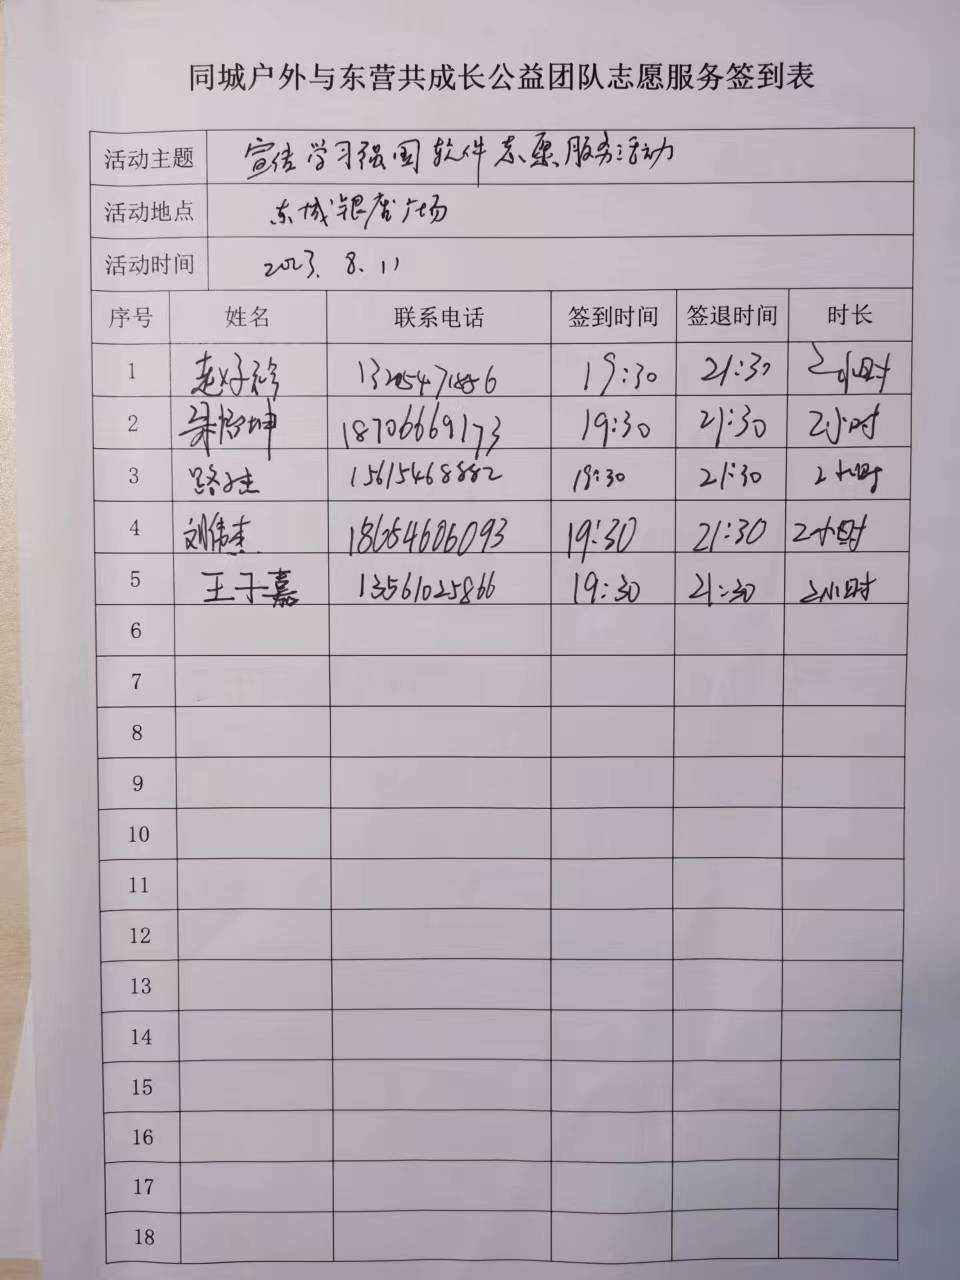 同城户外与东营共成长公益团队志愿服务签到表
活动主题 宣传学习强国软件志愿服务活动
活动地点 东城银座广场
活动时间 2023.8.11
序号 姓名 联系电话 签到时间 签退时间 时长
1 19:30 21:30 2小时
2 18706669173 19:30 21:30 2小时
3 15615468882 19:30 21:30 2小时
4 刘伟杰 18654606093 19:30 21:30 2小时
5 王子嘉 13561025866 19:30 21:30 2小时
6
7
8
9
10
11
12
13
14
15
16
17
18